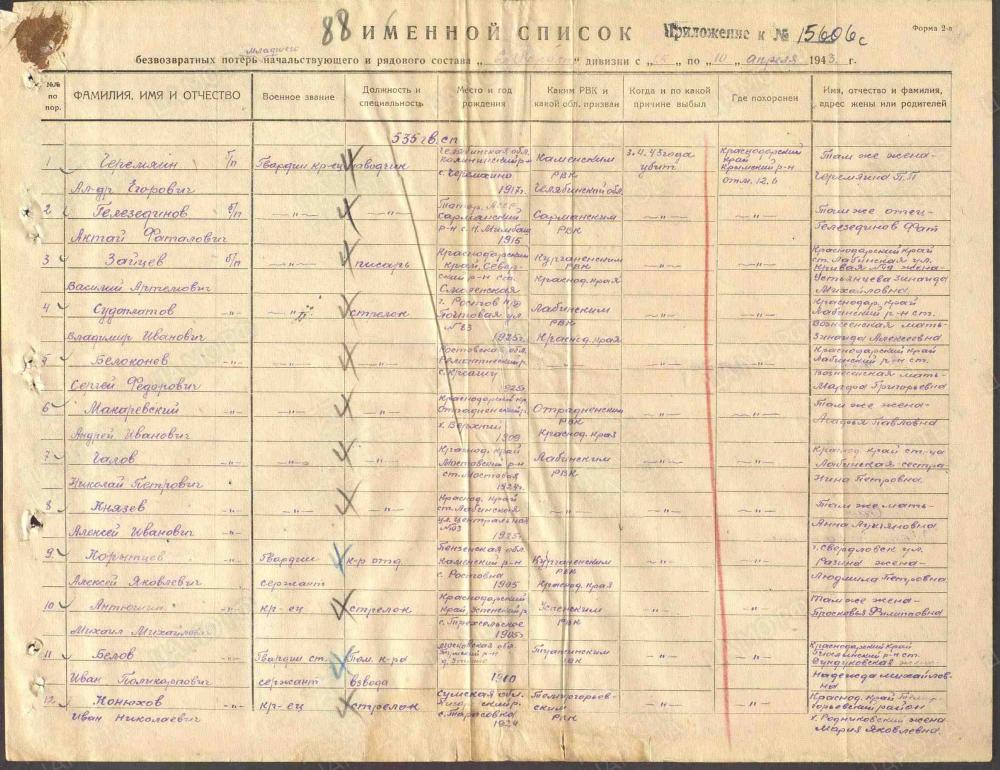 88 ИМЕННОЙ СПИСОК Приложение к № 15606с Форма 2-а
младшего
безвозвратных потерь начальствующего и рядового состава „ " дивизии с „ " по „10" апреля 1943 г.
№№ по пор. ФАМИЛИЯ, ИМЯ И ОТЧЕСТВО Военное звание Должность и специальность Место и год рождения Каким РВК и какой обл. призван Когда и по какой причине выбыл Где похоронен Имя, отчество и фамилия, адрес жены или родителей
535 гв. сп
1 Черемякин б/п Гвардии кр-ец наводчик Челябинская обл. Каменским РВК 3.4.43 года убит Краснодарский край Крымский р-н отм. 12.6 Там же жена-
Ал-др Егорович 1917г. Челябинской обл. Черемякина П.П
2 Гелезединов б/п —"— —"— Татар. АССР Сармановский р-н Сарманским РВК —"— —"— Там же отец-
Актай Фаталович 1915 Гелезединов Фат
3 Зайцев б/п —"— писарь Краснодарский край, Север-ский р-н ст. Смоленская Курганенским РВК —"— —"— Краснодарский край ст. Лабинская ул. Кривая жена-
Василий Артемович Краснод. края Устьянцева Зинаида Михайловна
4 Судоплатов —"— стрелок г. Ростов н/Д Почтовая ул. №83 Лабинским РВК —"— —"— Краснодар. край Лабинский р-н ст. Вознесенская мать-
Владимир Иванович 1925г. Краснод. края Зинаида Алексеевна
5 Белоконев -"- —"— —"— Ростовская обл. —"— —"— —"— Краснодарский край Лабинский р-н ст. Вознесенская мать-
Сергей Федорович 1925г Марфа Григорьевна
6 Макаревский -"- —"— —"— Краснодарский кр. Отрадненский р. Отрадненским РВК —"— —"— Там же жена-
Андрей Иванович х. Верхний 1909 Краснод. края Агафья Павловна
7 Чалов -"- —"— —"— Краснод. край Мостовский р-н ст. Мостовая Лабинским РВК —"— —"— Краснод. край ст-ца Лабинская сестра-
Николай Петрович 1924г. Нина Петровна
8 Князев -"- —"— —"— Краснод. край ст. Лабинская ул. Центральная —"— —"— —"— Там же мать-
Алексей Иванович -"- 1925г. Анна Лукьяновна
9. Корытцев -"- Гвардии к-р отд. Пензенская обл. Каменский р-н Курганенским РВК —"— —"— г. Свердловск ул. Разина жена-
Алексей Яковлевич сержант с. Ростовка 1905 Краснод. края Людмила Петровна
10 Антюшин -"- кр-ец стрелок Краснодарский край, Успенский р Успенским РВК —"— —"— Там же жена-
Михаил Михайлович с. Трехсельское 1905г. Прасковья Филиповна
11 Белов -"- Гвардии ст. Пом. к-ра Московская обл. РВК —"— —"— Краснодарский край
Иван Поликарпович сержант взвода 1910 Надежда Михайлов-на
12. Конюхов -"- кр-ец стрелок Сумская обл. РВК —"— —"— Краснод. край
Иван Николаевич с. Тарасовка 1924 х. Родниковский жена Мария Яковлевна.